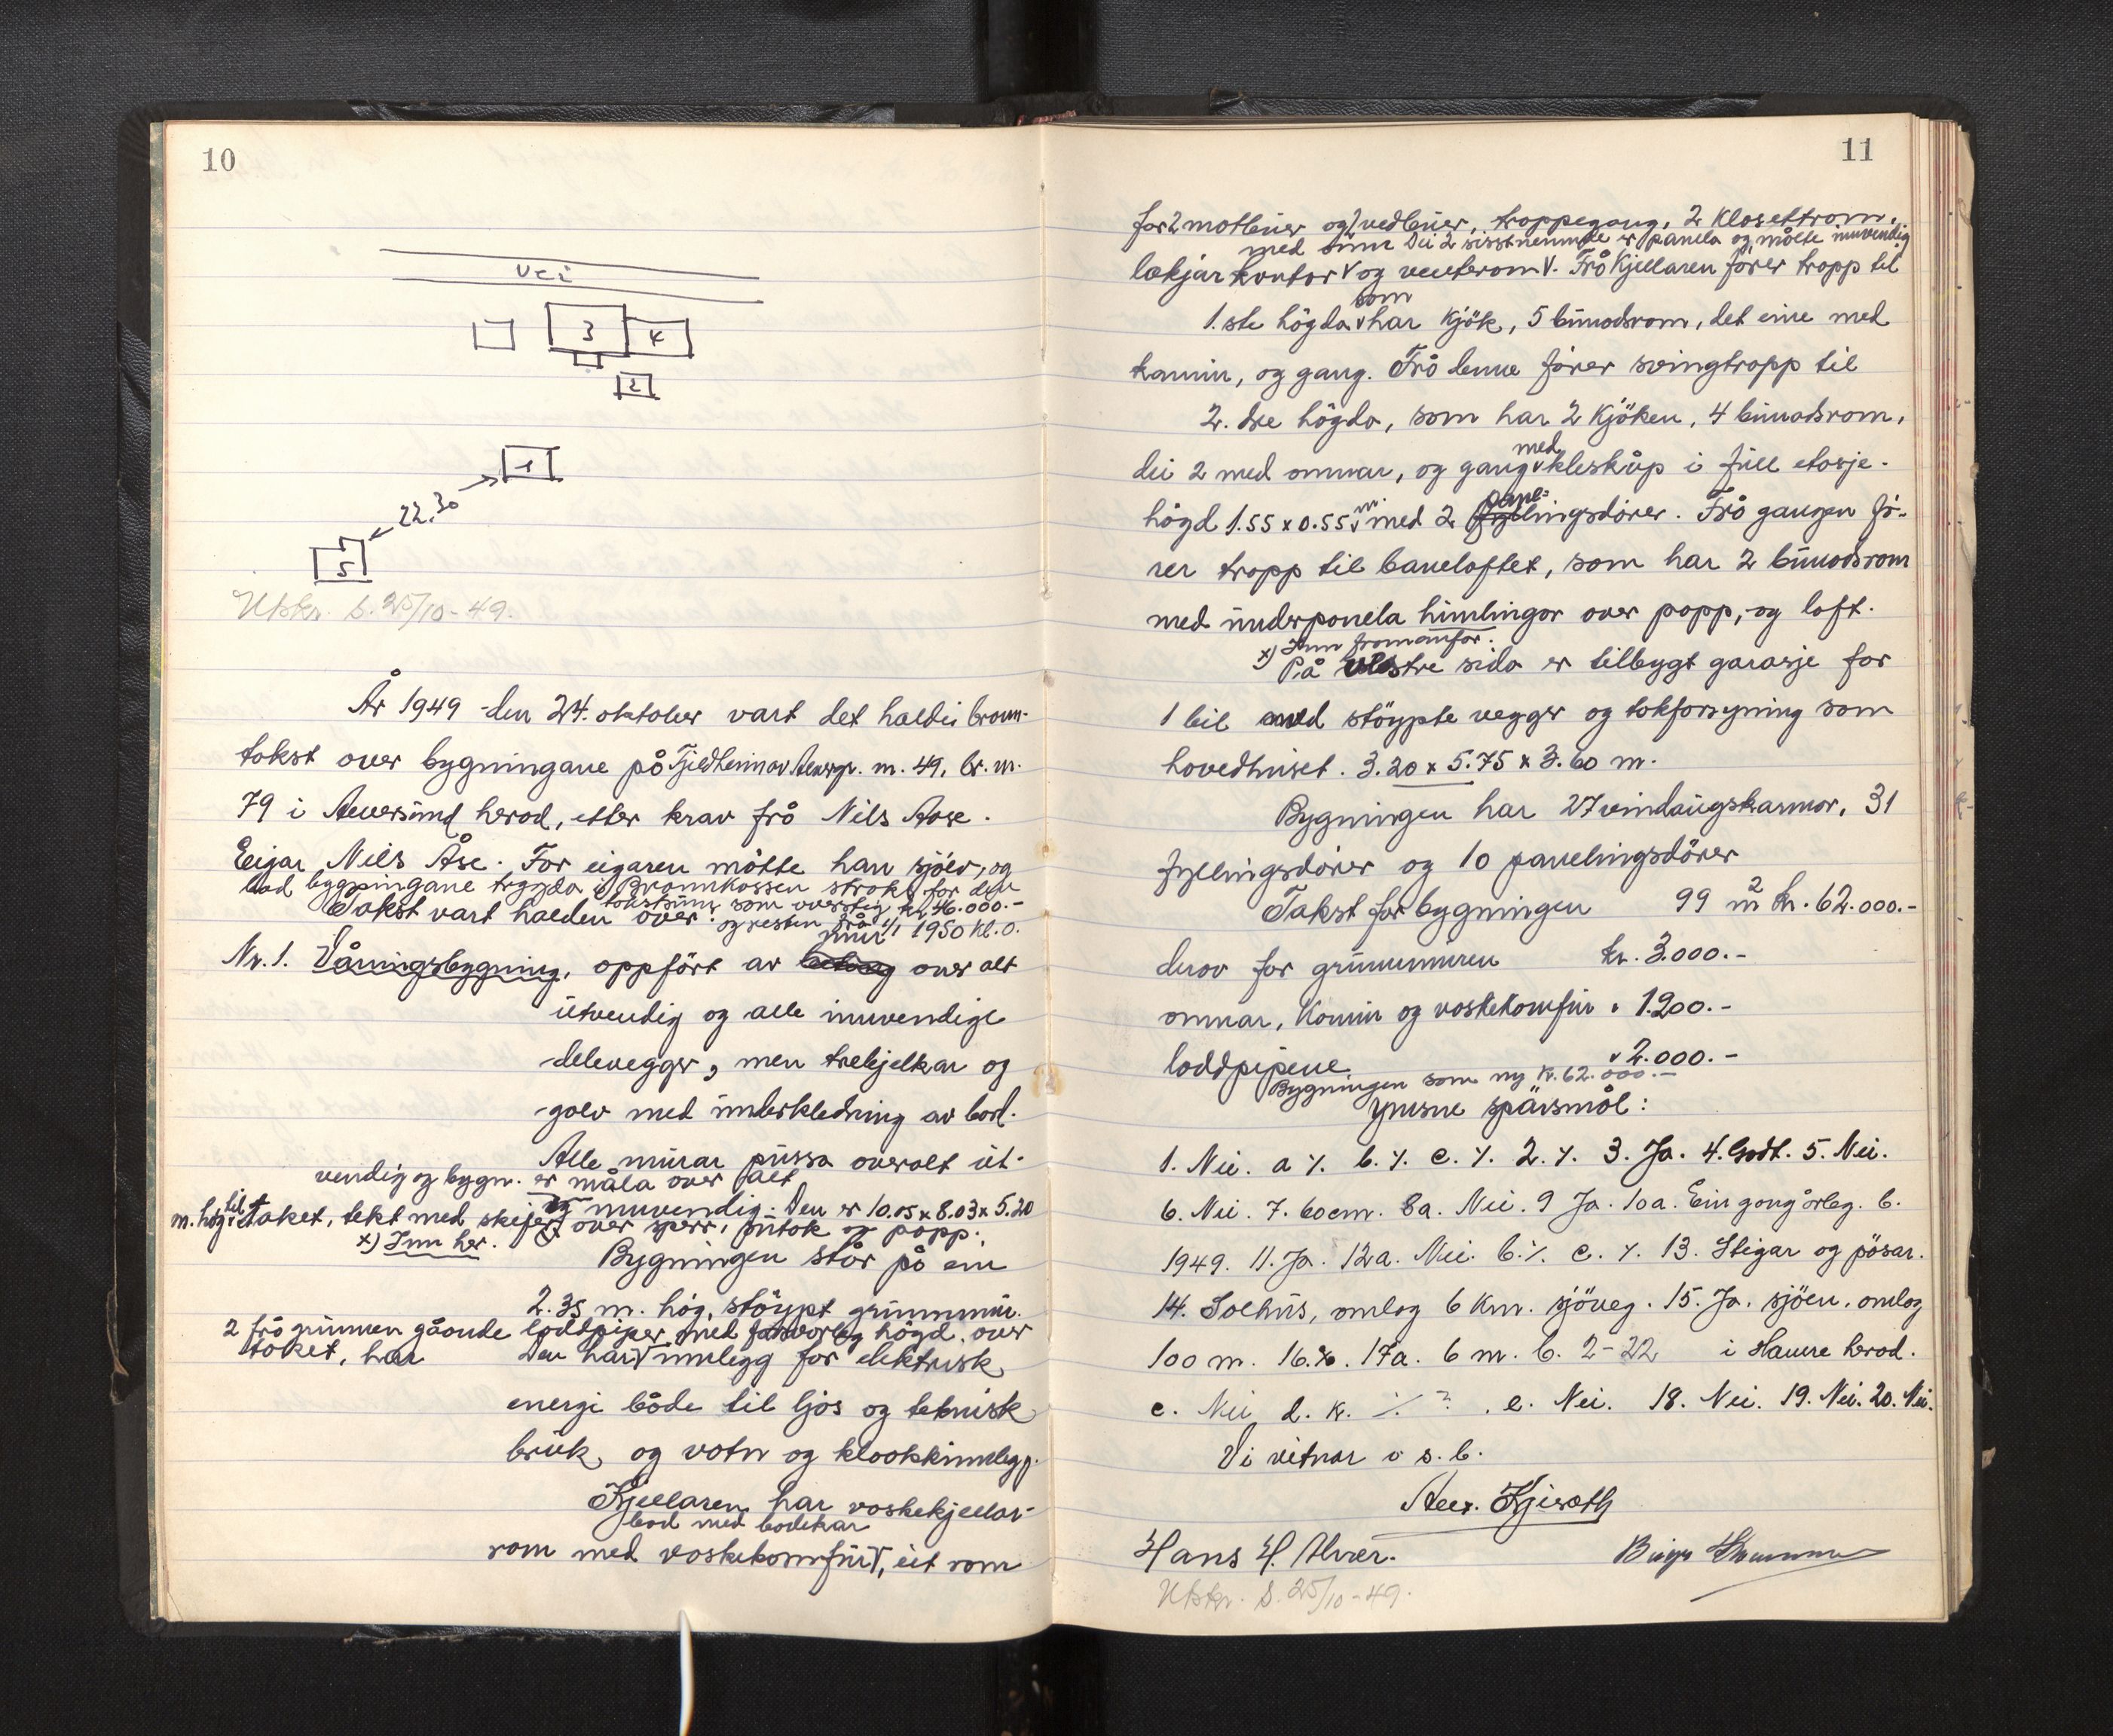 10
Vei
3
4
2
1
22.30
5
Utskr. s. 25/10-49.
År 1949 den 24. oktober vart det halde brann-
takst over bygningane på Fjeldheim av gr. nr. 49, br. nr.
79 i herad, etter krav frå Nils Aase.
Eigar Nils Åse. For eigaren møtte han sjølv, og
bad bygningane trygda i Brannkassen straks for den
takstsum som overstig kr. 46.000.-
og resten frå 1/1 1950 kl. 0.
Takst vart halden over:
mur
Nr. 1. Våningsbygning, oppført av over alt
utvendig og alle innvendige
delevegger, men trebjelkar og
golv med underkledning av bord.
Alle murar pussa overalt ut-
vendig og bygn. er måla over alt
og innvendig. Den er 10.05 x 8.03 x 5.20
m. høg til taket, tekt med skifer over sperr, sutak og papp.
x) Inn her.
Bygningen står på ein
2.35 m. høg, støypt grunnmur.
2 frå grunnen gåande loddpiper med forsvarleg høgd over
taket, har
Den har V innlegg for elektrisk
energi både til ljos og teknisk
bruk, og vatn og kloakkinnlegg.
Kjellaren har vaskekjellar-
bad med badekar
rom med vaskekomfur V, eit rom
11
for 2 matbuer og 2 vedbuer, troppegang, 2 klosettrom,
med Dei 2 sisstnemnde er panela og målte innvendig
lækjarkontor V og venterom V. Frå kjellaren fører tropp til
som
1.ste høgda V har kjök, 5 buuadsrom, det eine med
kamin, og gang. Frå denne fører svingtropp til
2. dre høgda, som har 2 kjöken, 4 buuadsrom,
med
dei 2 med omnar, og gang V kleskåp i full etasje-
pane-
høgd 1.55 x 0.55 m V med 2 fyllingsdører. Frå gangen fø-
rer tropp til baneloftet, som har 2 buuadsrom
med underpanela himlingar over papp, og loft.
x) Inn framanfor.
På vestre sida er tilbygt garasje for
1 bil med støypte vegger og takforsyning som
hovedhuset. 3.20 x 5.75 x 3.60 m.
Bygningen har 27 vindaugskarmar, 31
fyllingsdører og 10 panelingsdører
Takst for bygningen 99 m2 kr. 62.000.-
derav for grunnmuren kr. 3.000.-
omnar, kamin og vaskekomfur " 1.200.-
loddpipene " 2.000.-
Bygningen som ny kr. 62.000.-
Ymsne spørsmål:
1. Nei. a ٪. b. ٪. c. ٪. 2. ٪. 3. Ja. 4. Godt. 5. Nei.
6. Nei. 7. 60cm. 8a. Nei. 9 Ja. 10a. Ein gong årleg. b.
1949. 11. Ja. 12a. Nei. b. ٪. c. ٪. 13. Stigar og pösar.
14. Solhus, omlag 6 km. sjöveg. 15. Ja. sjöen, omlag
100 m. 16. ٪. 17a. 6 m. b. 2-22 i Hamre herad.
c. Nei d. kr. ٪ ? . e. Nei. 18. Nei. 19. Nei. 20. Nei.
Vi vitnar o s. b.
Hans H. Alver.
Utskr. s. 25/10-49.